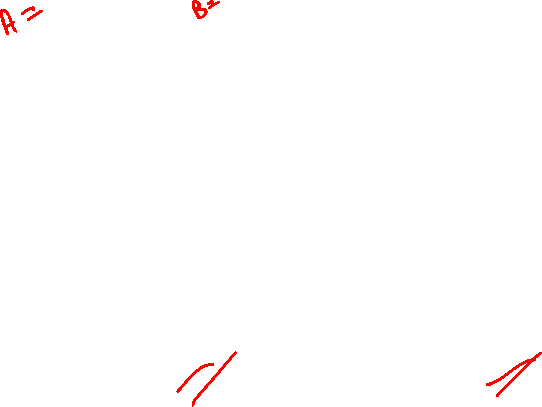 A = B =